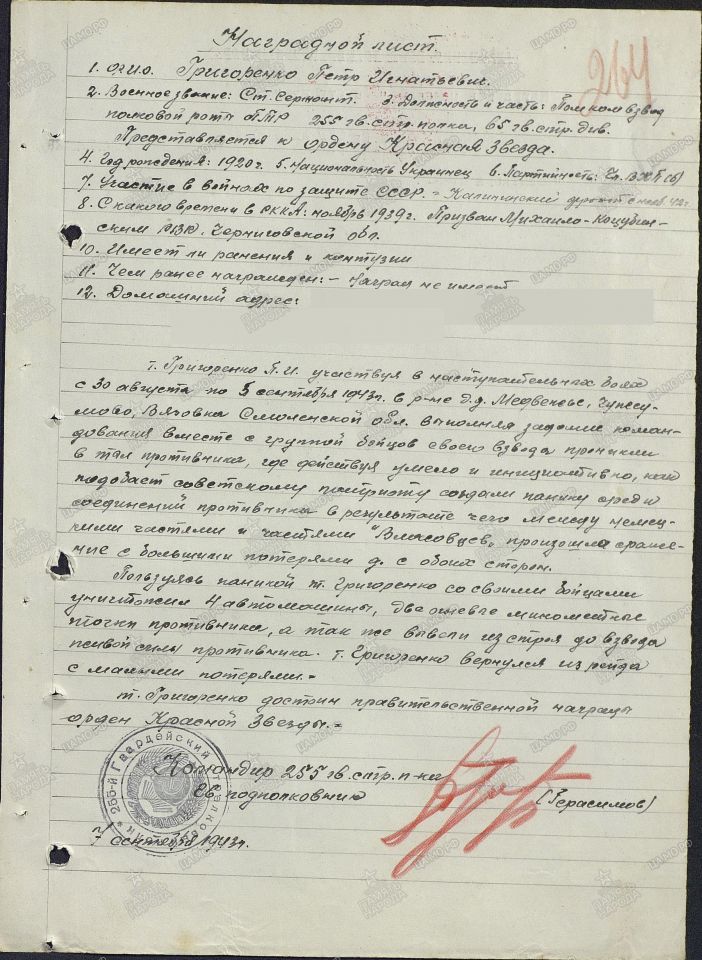 Наградной лист.
264
1. Ф.И.О. Григоренко Петр Игнатьевич.
2. Военное звание: Ст. Сержант. 3. Должность и часть: Пом ком взвод
полковой роты ПТР 255 гв. стр. полка, 65 гв. стр. див.
Представляется к ордену Красная Звезда.
4. Год рождения: 1920 г. 5. Национальность Украинец 6. Партийность: Чл. ВКП(б)
7. Участие в войнах по защите СССР. - Калининский фронт с
8. С какого времени в РККА: ноябрь 1939 г. Призван Михайло-Коцубин-
ским РВК. Черниговской обл.
10. Имеет ли ранения и контузии
11. Чем ранее награжден: - Наград не имеет
12. Домашний адрес:
т. Григоренко П.И. участвуя в наступательных боях
с 30 августа по 5 сентября 1943 г. в р-не д.д. Медвежье,
Вязовка Смоленской обл. выполняя задание коман-
дования вместе с группой бойцов своего взвода проникли
в тыл противника, где действуя умело и инициативно, как
подобает советскому патриоту создали панику среди
соединений противника в результате чего между немец-
кими частями и частями "Власовцев" произошло сраже-
ние с большими потерями д. с обоих сторон.
Пользуясь паникой т. Григоренко со своими бойцами
уничтожил 4 автомашины, две огневые минометные
точки противника, а так же вывели из строя до взвода
живой силы противника. т. Григоренко вернулся из рейда
с малыми потерями. -
т. Григоренко достоин правительственной награды
орден Красной Звезды. -
Командир 255 гв. стр. п-ка
Гв. подполковник
(Герасимов)
7 сентября 1943 г.
255-й Гвардейский Стрелковый